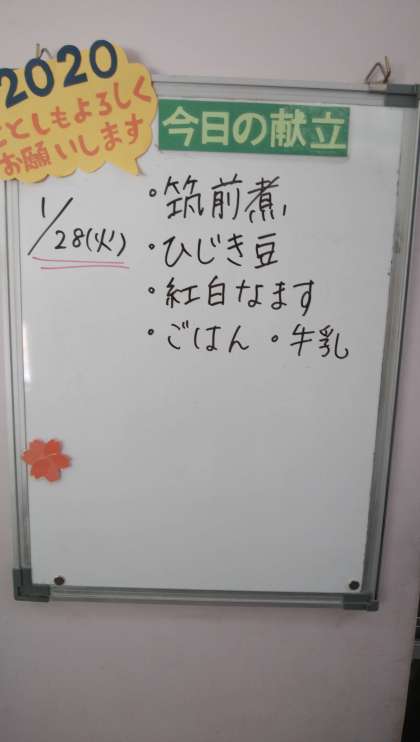 2020
ことしもよろしく
お願いします
今日の献立
1/28(火)
・筑前煮
・ひじき豆
・紅白なます
・ごはん ・牛乳